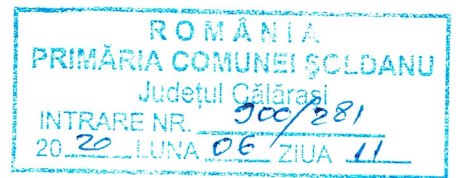 ROMÂNIA
PRIMĂRIA COMUNEI ȘOLDANU
Județul Călărași
INTRARE NR. 900/281
2020 LUNA 06 ZIUA 11